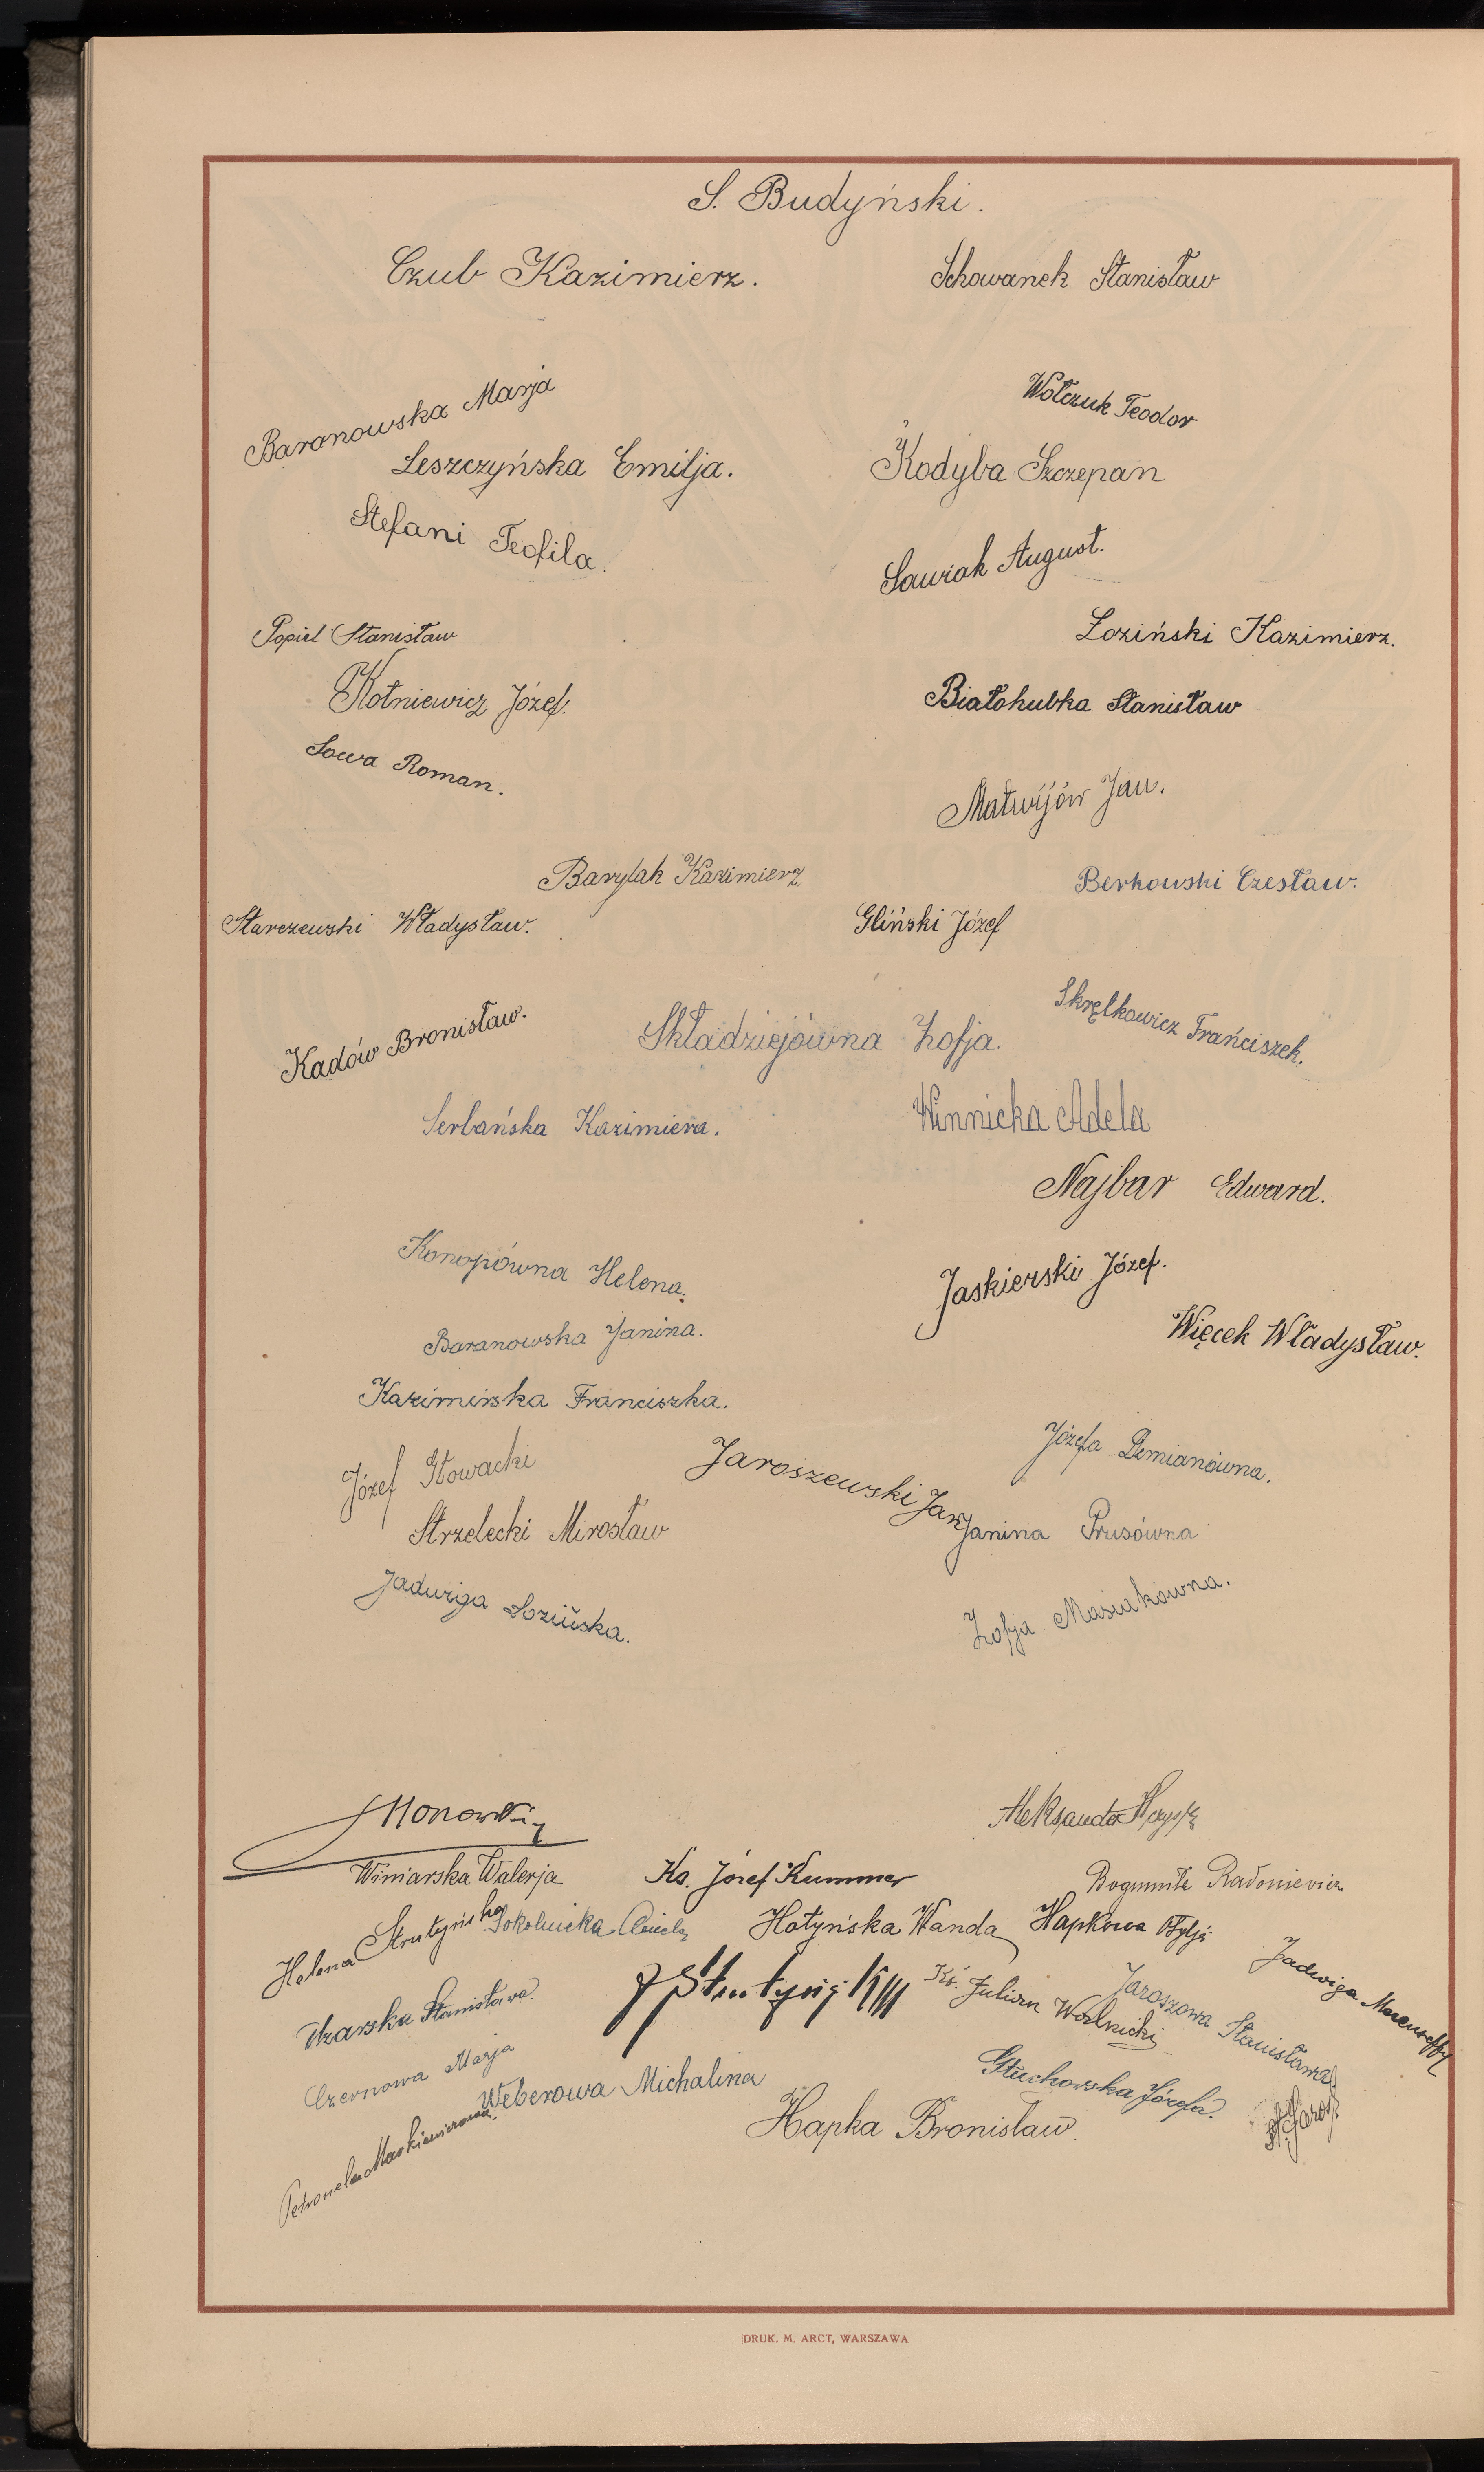 S. Budyński.
Czub Kazimierz.
Schowanek Stanisław
Baranowska Marja
Wołczuk Teodor
Leszczyńska Emilja.
Kodyba Szczepan
Stefani Teofila.
Sawiak August.
Popiel Stanisław
Łoziński Kazimierz.
Kotniewicz Józef.
Białohubka Stanisław
Sowa Roman.
Matwijów Jan.
Barylak Kazimierz
Berkowski Czesław.
Starczewski Władysław.
Gliński Józef
Kadów Bronisław.
Składziejówna Zofja.
Skrętkowicz Frańciszek.
Serbańska Kazimiera.
Winnicka Adela
Najbar Edward.
Konopówna Helena.
Jaskierski Józef.
Baranowska Janina.
Więcek Władysław.
Kazimirska Franciszka.
Józef Słowacki
Jaroszewski Jan
Józefa Demianówna.
Strzelecki Mirosław
Janina Prusówna
Jadwiga Łozińska.
Zofja Masiukówna.
Aleksander
Winiarska Walerja
Ks. Józef Kummer
Helena Strutyńska
Sokolnicka Aniela
Hołyńska Wanda
Hapkowa Otylja
Jadwiga
Stanisława
Ks. Julian
Jaroszowa Stanisława
Czernowa Marja
Weberowa Michalina
Głuchowska Józefa.
Petronela Markiewiczowa
Hapka Bronisław
St. Jarosz
DRUK. M. ARCT, WARSZAWA